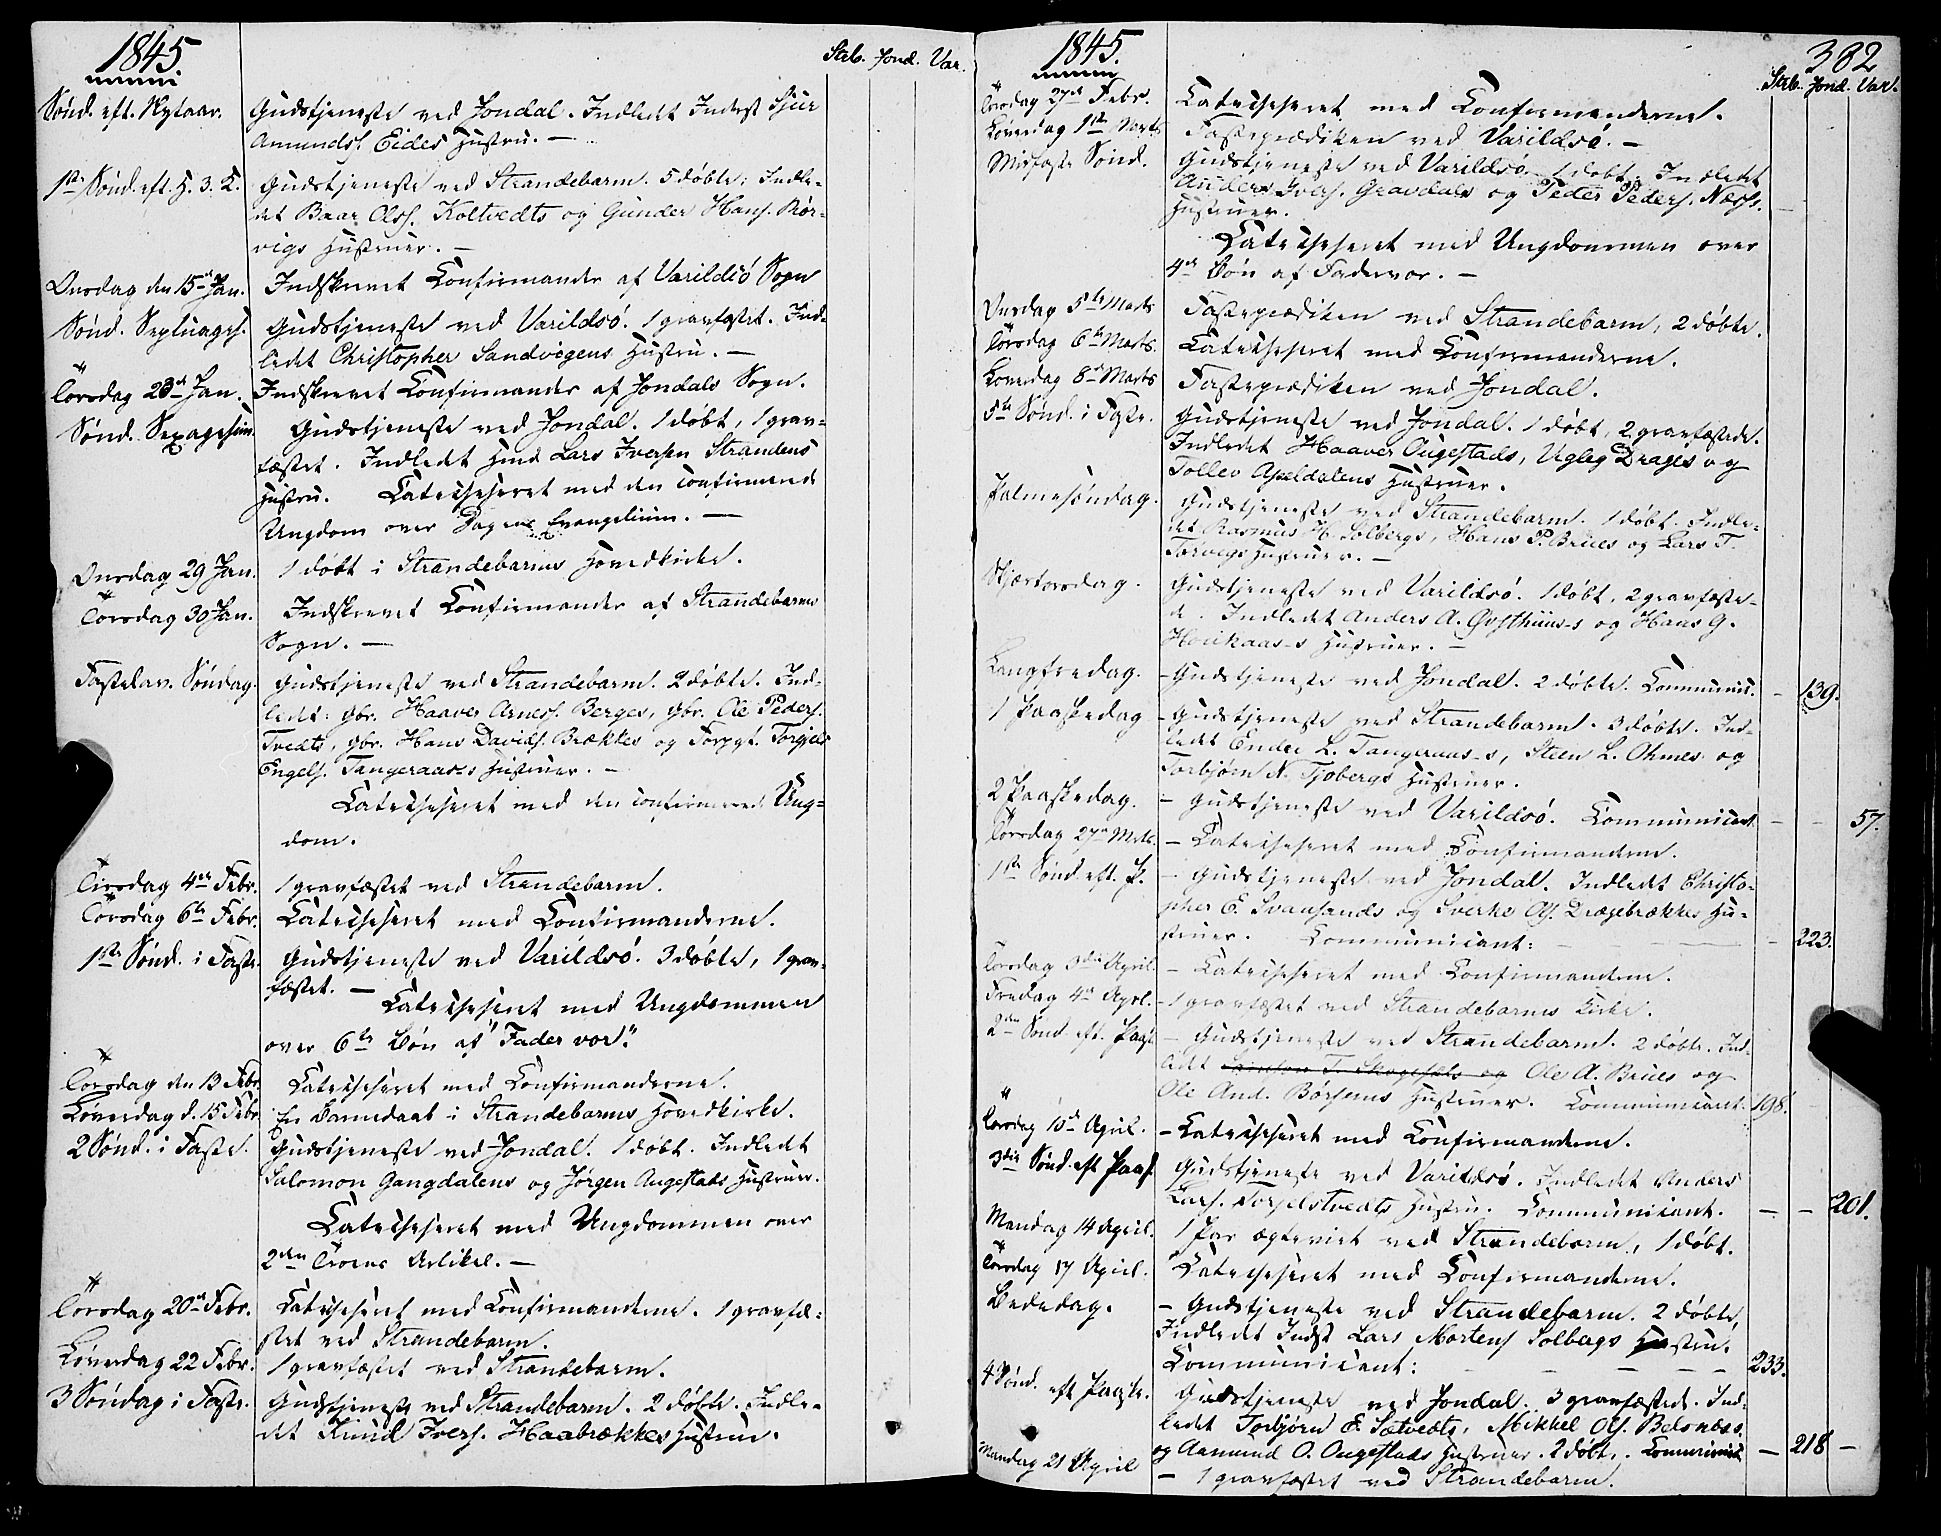 1845
Strb. Jond. Var.
Sönd. eft. Nytaar. Gudstjeneste ved Jondal. Indledt Inderst Sjur
Amunds. Eides Hustru. —
1ste Sönd. eft. H. 3. K. Gudstjeneste ved Strandebarm. 5 döbte; Indle-
det Baar Olss. Koltvedts og Gunder Hans. Rör-
vigs Hustruer. —
Onsdag den 15de Jan. Indskrevet Confirmander af Varildsö Sogn
Sönd. Septuages. Gudstjeneste ved Varildsö. 1 gravfæstet. Ind-
ledet Christopher Sandvigens Hustru. —
Torsdag 23de Jan. Indskrevet Confirmander af Jondals Sogn.
Sönd. Sexagesim. Gudstjeneste ved Jondal. 1 döbt, 1 grav-
fæstet. Indledt Lars Iversen Strandens
Hustru. Catechiseret med den confirmerede
Ungdom over Dagens Evangelium. —
Onsdag 29 Jan. 1 döbt i Strandebarms Hovedkirke.
Torsdag 30 Jan. Indskrevet Confirmander af Strandebarms
Sogn. —
Fastelav. Söndag. Gudstjeneste ved Strandebarm. 2 döbte. Ind-
ledt: Gbr. Haaver Arness. Berges, Gbr. Ole Peders.
Tvedts, Gbr. Hans Davids. Brækkes og Forpgt. Torgiels
Engels. Tangeraases Hustruer. —
Catechiseret med den confirmerede Ung-
dom.
Tirsdag 4de Febr. 1 gravfæstet ved Strandebarm.
Torsdag 6te Febr. Catechiseret med Confirmanderne.
1ste Sönd. i Faste. Gudstjeneste ved Varildsö. 3 döbte, 1 grav-
fæstet. — Catechiseret med Ungdommen
over 6te Bön af "Fader vor".
Torsdag den 13 Febr. Catechiseret med Confirmanderne.
Löverdag d. 15 Febr. En Barnedaab i Strandebarms Hovedkirke.
2 Sönd. i Faste. Gudstjeneste ved Jondal. 1 döbt. Indledet
Salomon Gangdalens og Jörgen Augestads Hustruer.
Catechiseret med Ungdommen over
2den Troens Artikel. —
Torsdag 20de Febr. Catechiseret med Confirmanderne. 1 gravfæ-
stet ved Strandebarm.
Löverdag 22 Febr. 1 gravfæstet ved Strandebarm.
3 Söndag i Faste. Gudstjeneste ved Strandebarm. 2 döbte. Indle-
det Knud Ivers. Haabrækkes Hustru.
1845.
382
Strb. Jond. Var.
Torsdag 27de Febr. Catechiseret med Confirmanderne.
Löverdag 1ste Marts Fasteprædiken ved Varildsö. —
Midfaste Sönd. Gudstjeneste ved Varildsö. 1 döbt. Indledet
Anders Ivers. Gravdals og Peder Peders. Næss.
Hustruer.
Catechiseret med Ungdommen over
4de Bön af Fadervor. —
Onsdag 5te Marts Fasteprædiken ved Strandebarm, 2 döbte.
Torsdag 6te Marts. Catechiseret med Confirmanderne.
Löverdag 8de Marts Fasteprædiken ved Jondal.
5te Sönd. i Faste. Gudstjeneste ved Jondal. 1 döbt, 2 gravfæstede.
Indledet Haaver Augestads, Ugleg Drages og
Tollev Apeldalens Hustruer.
Palmesöndag. Gudstjeneste ved Strandebarm. 1 döbt. Indle-
det Rasmus H. Solbergs, Hans P. Brues og Lars T.
Torvigs Hustruer. —
Skjærtorsdag. Gudstjeneste ved Varildsö. 1 döbt, 2 gravfæste-
de. Indledet Anders A. Gjsthuus-s og Hans G.
Houkaas-s Hustruer. —
Langfredag. - Gudstjeneste ved Jondal. 2 döbte. Communic. - 139.
1 Paaskedag - Gudstjeneste ved Strandebarm. 3 döbte. Ind-
ledet Endre L. Tangeraas-s, Steen L. Ohmes og
Torbjörn N. Tjobergs Hustruer.
2 Paaskedag. - Gudstjeneste ved Varildsö. Communicant. - - 57.
Torsdag 27de Mrts. - Catechiseret med Confirmanderne.
1ste Sönd. eft. P. - Gudstjeneste ved Jondal. Indledt Christo-
pher E. Svansands og Sverke Ols. Drægebrækkes Hu-
struer. Communicant: - 223.
Torsdag 3die April. - Catechiseret med Confirmanderne.
Fredag 4de April. - 1 gravfæstet ved Strandebarms Kirke.
2den Sönd. eft. Paask. - Gudstjeneste ved Strandebarm. 2 döbte. Ind-
ledet Ole A. Brues og
Ole And. Börsens Hustruer. Communicant. 198.
Torsdag 10de April. - Catechiseret med Confirmanderne.
3die Sönd. eft Paas. Gudstjeneste ved Varildsö. Indledet Anders
Lars. Torjelstvedts Hustru. Communicant. — - 201.
Mandag 14 April. 1 Par ægteviet ved Strandebarm, 1 döbt.
Torsdag 17 April. Catechiseret med Confirmanderne.
Bededag. - Gudstjeneste ved Strandebarm. 2 döbte,
Indledt Indst Lars Mortens Solbergs Hustru.
Communicant: 233.
4 Sönd. eft Paaske. Gudstjeneste ved Jondal. 3 gravfæstede. Ind-
ledet Torbjörn E. Sætvedts, Mikkel Ols. Belsnæs,
og Aamund O. Augestads Hustruer. 2 döbte. Communicant — 218 —
Mandag 21 April — 1 gravfæstet ved Strandebarm.